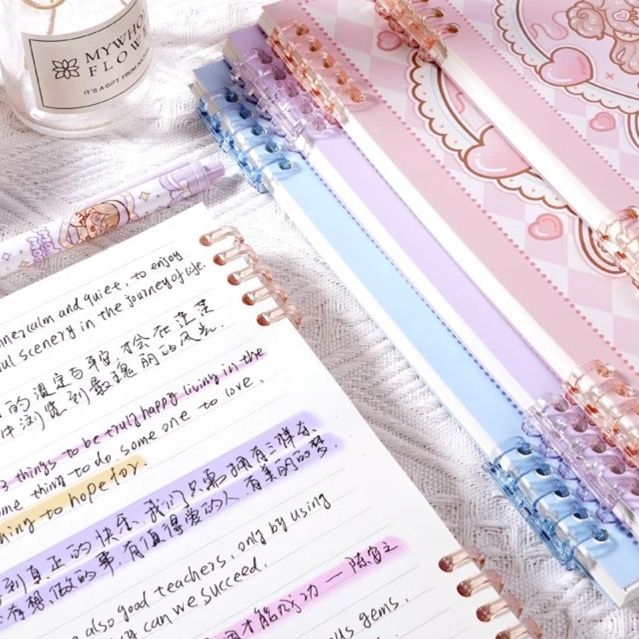 MYWHO
FLOWE
IT'S A GIFT FROM
calm and quiet, to enjoy
scenery in the journey of life.
的淡定与平容,才会在茫茫
中浏览到最瑰丽的风光.
things to be truly happy living in the
some thing to do some one to love,
thing to hope for.
到真正的快乐,我们只需拥有三样东
有想做的事,有值得爱的人,有美丽的梦
also good teachers, only by using
can we succeed.
才能成功一陈寅之
gems.